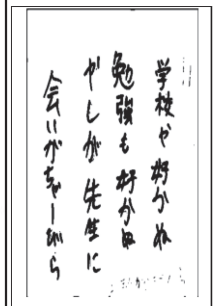 学校や好かぬ
勉強も好かぬ
やしが先生に
会いがちゃーびら